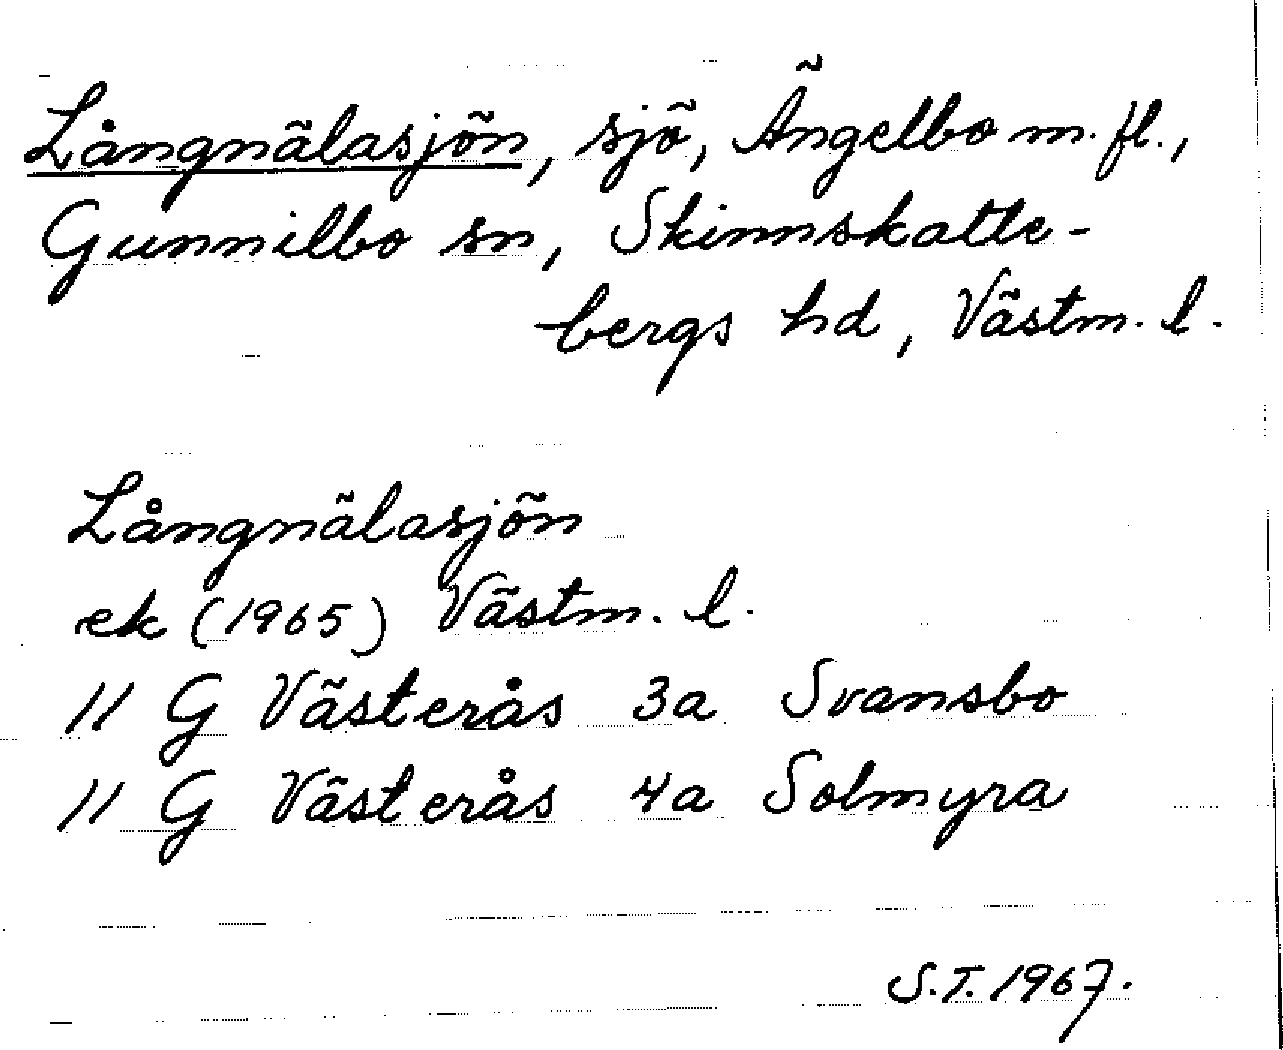 Långnälasjön, sjö, Ängelbo m. fl.,
Gunnilbo sn, Skinnskatte-
bergs hd, Västm. l.
Långnälasjön
ek (1965) Västm. l.
11 G Västerås 3a Svansbo
11 G Västerås 4a Solmyra
S.T. 1967.